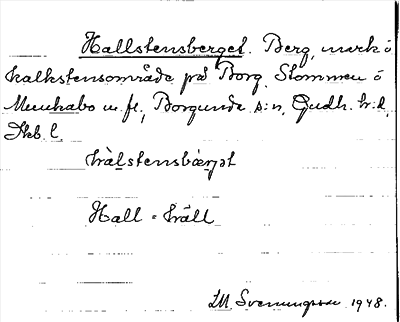 Hallstensberget. Berg, mark o
kalkstensområde på Borg, Stommen o
Munkabo m. fl., Borgunda s:n, Gudh. h:d,
Skb l.
hàlstensbærjət
Hall = häll
IM Svenungsson 1948.